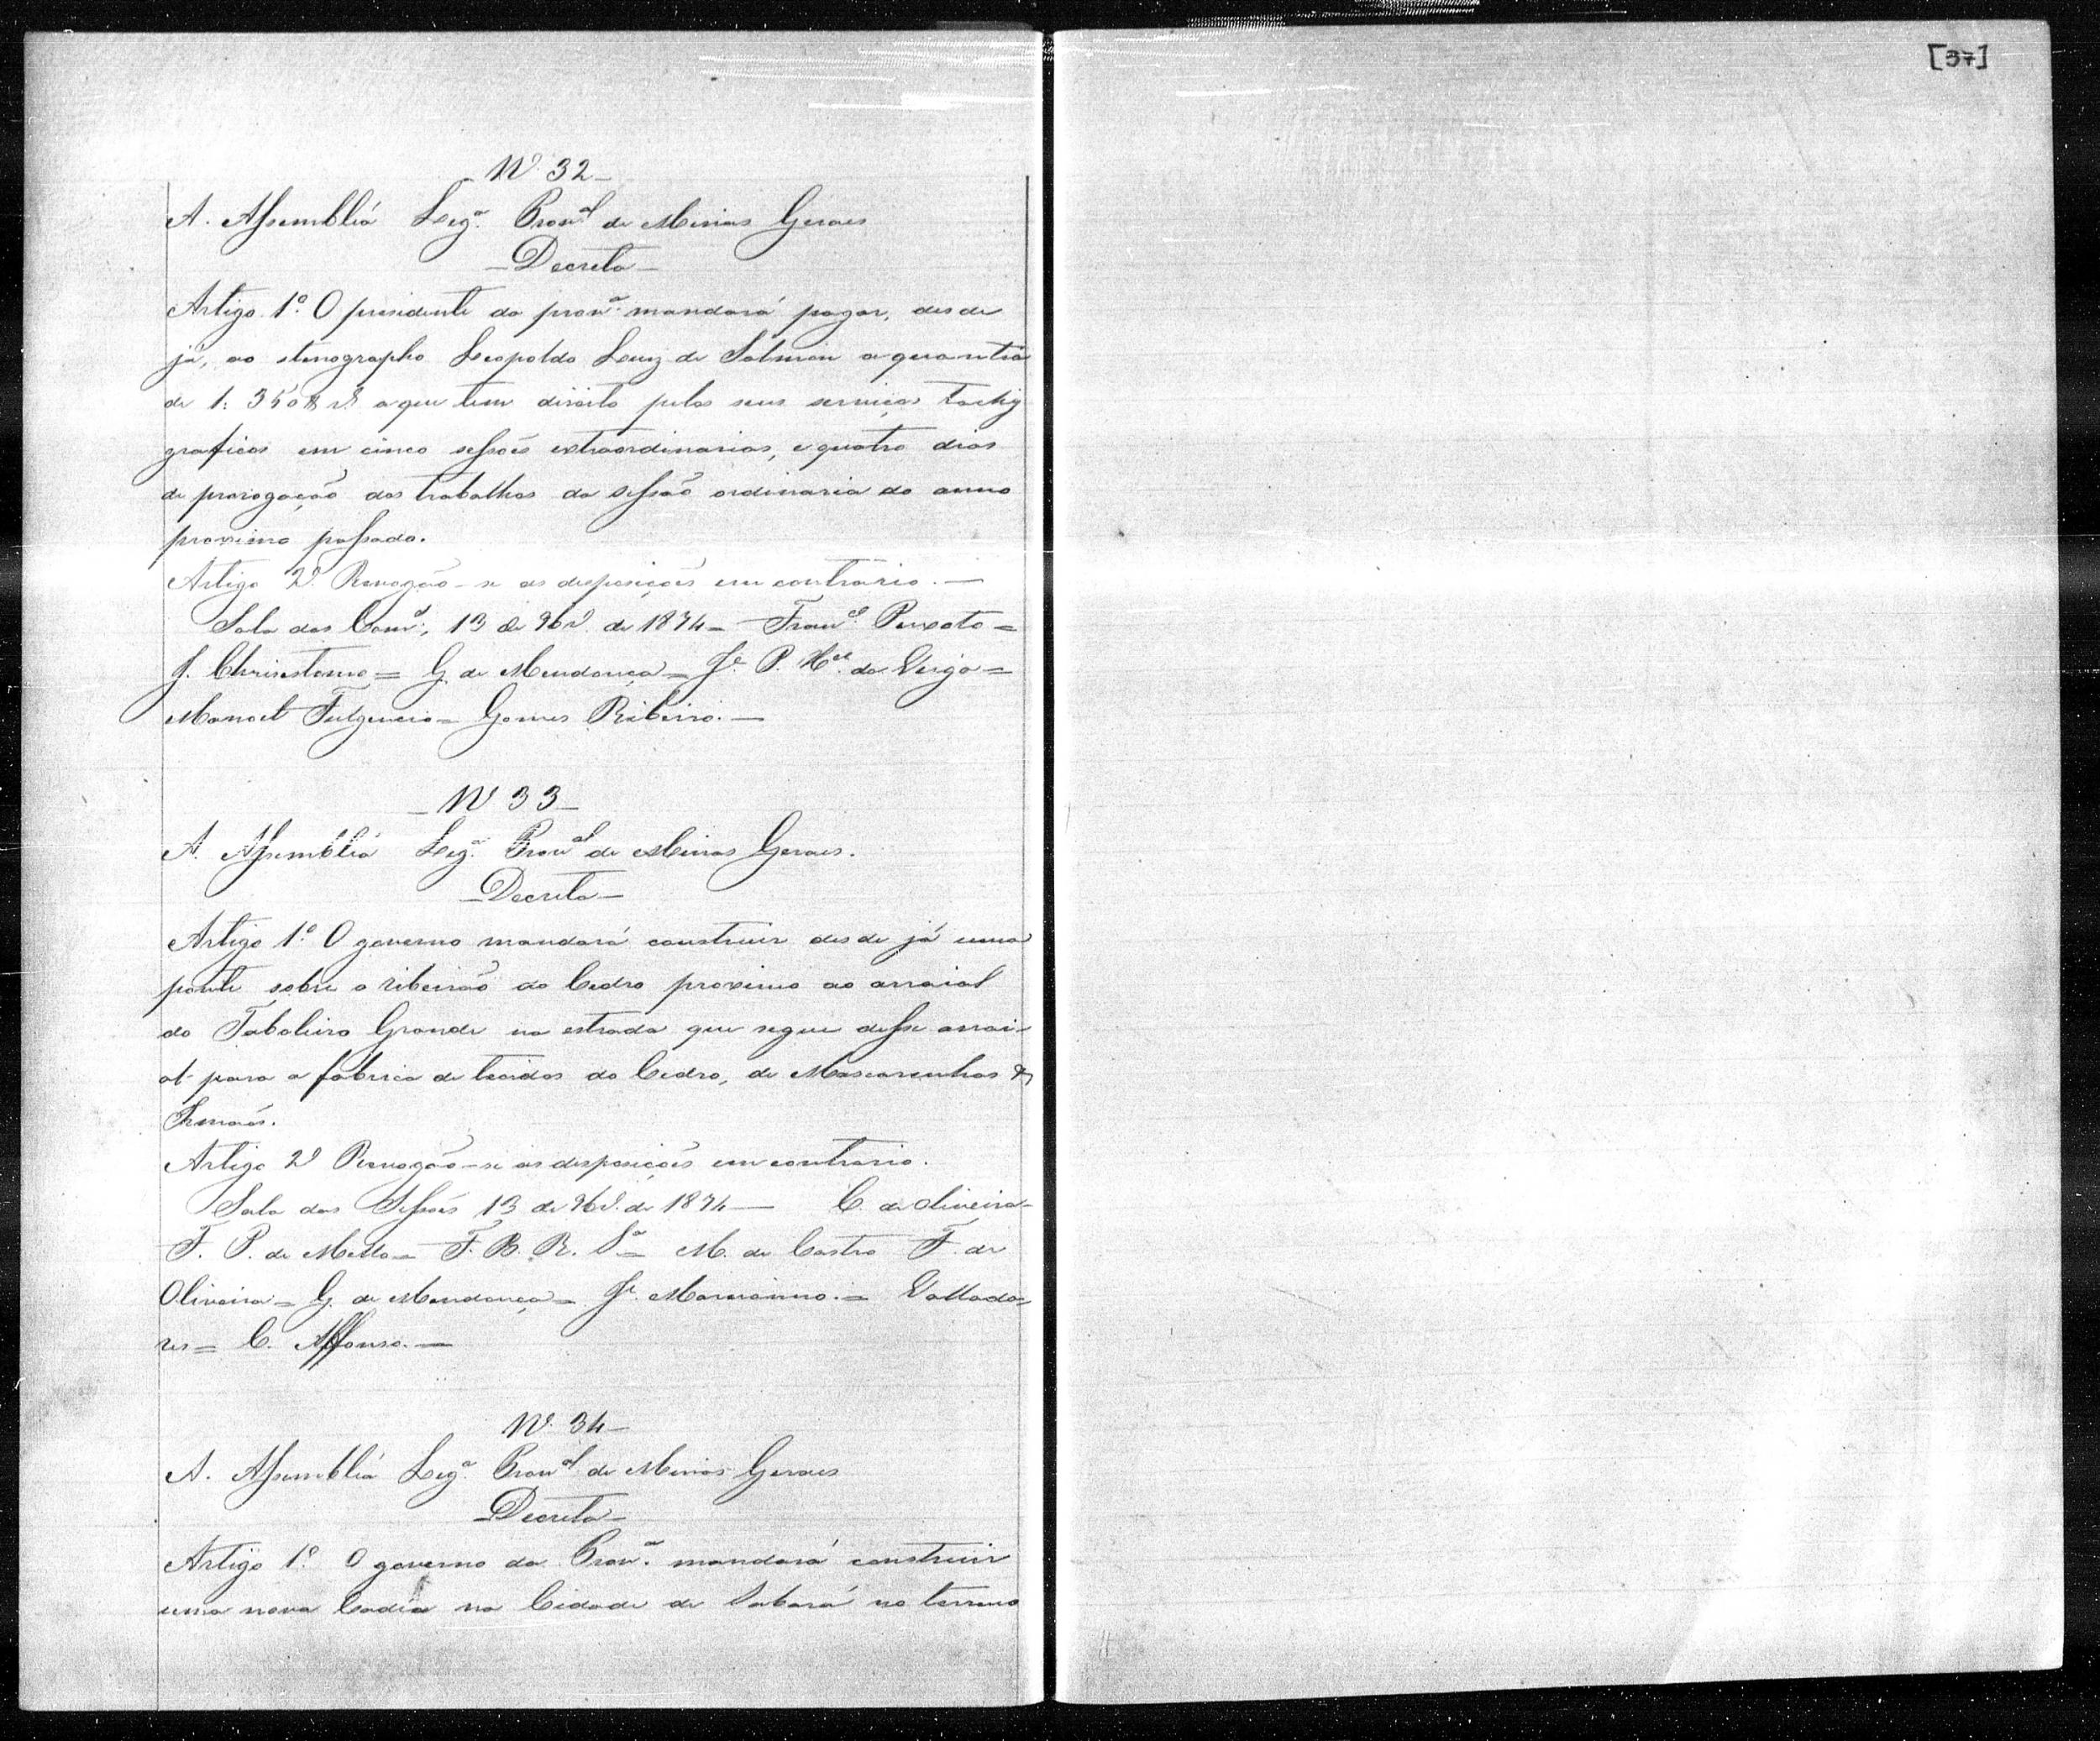 [37]
Nº 32 –
A. Assembléa Leg.ª Prov.al de Minas Geraes
– Decreta –
Artigo 1º. O presidente da prov.ª mandará pagar, desde
já, ao stenographo Leopoldo Luiz de Salmon a quantia
de 1:350$ rs. a que tem direito pelos seus serviços tachy
graficos em cinco sessões extraordinarias, e quatro dias
de prorogação dos trabalhos da sessão ordinaria do anno
proximo passado.
Artigo 2º. Revogão-se as disposições em contrario. –
Sala das Com.es, 13 de 9br.º de 1874 – Fran.co Peixoto =
J. Chrisostomo = G. de Mendonça = J.e P. X.er da Veiga =
Manoel Fulgencio = Gomes Ribeiro. –
– Nº 33 –
A. Assembléa Leg.ª Prov.al de Minas Geraes.
– Decreta –
Artigo 1º. O governo mandará construir desde já uma
ponte sobre o ribeirão do Cedro proximo ao arraial
do Taboleiro Grande na estrada que segue desse arrai-
al para a fabrica de tecidos do Cedro, de Mascarenhas &
Irmãos.
Artigo 2º Revogão-se as disposições em contrario.
Sala das Sessões 13 de 9br.º de 1874 – C. de Oliveira –
F. P. de Mello = F. B. R. S.ª = M. de Castro F. de
Oliveira = G. de Mendonça = J.e Marianno. = Vallada-
res = C. Affonso. –
Nº. 34 –
A. Assembléa Leg.ª Prov.al de Minas Geraes
– Decreta –
Artigo 1º. O governo da Prov.ª mandará construir
uma nova Cadêa na Cidade de Sabará no terreno